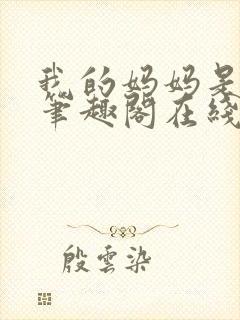 我的妈妈是
笔趣阁在线
殷雲染